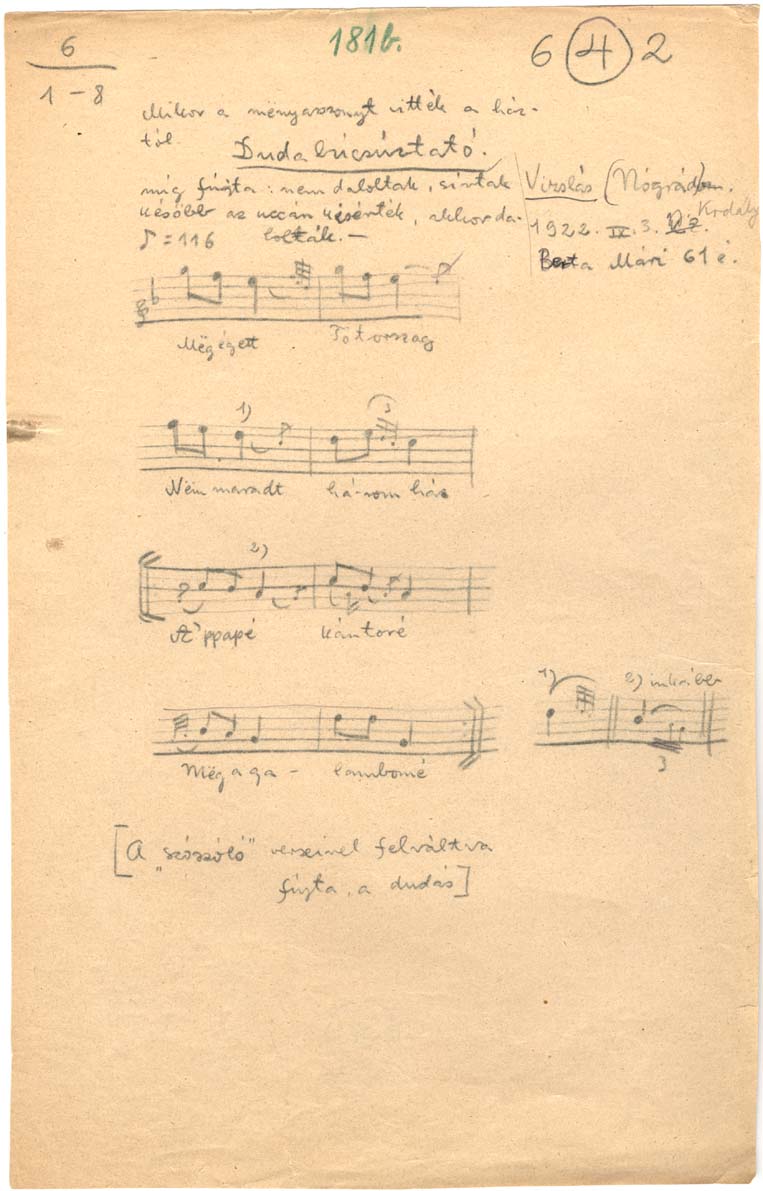 6
1 - 8
181b.
6 4 2
Mikor a mënyasszonyt vitték a ház-
tól
Duda búcsúztató.
míg fújta: nem daloltak, sírtak
később az uccán kisérték, akkor da-
lolták. —
♪ = 116
Vizslás (Nógrád)
Kodály
1922. IX. 3.
Berta Mári 61 é.
Mëgégett Tótország
1) 3
Nëm maradt há-rom ház
2)
A' ppapé kántoré
Mëg a ga - lambomé
1) 2) inkább
3
[A „szószóló" verseivel felváltva
fújta, a dudás]